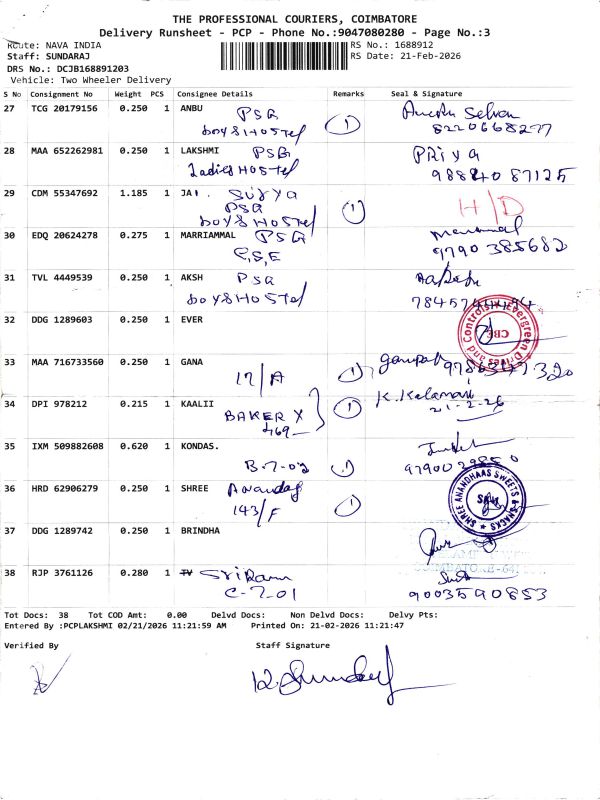 THE PROFESSIONAL COURIERS, COIMBATORE
Delivery Runsheet - PCP - Phone No.:9047080280 - Page No.:3
Route: NAVA INDIA
RS No.: 1688912
Staff: SUNDARAJ
RS Date: 21-Feb-2026
DRS No.: DCJB168891203
Vehicle: Two Wheeler Delivery
S No Consignment No Weight PCS Consignee Details Remarks Seal & Signature
27 TCG 20179156 0.250 1 ANBU PSG
boys Hostel 1 8220668277
28 MAA 652262981 0.250 1 LAKSHMI PSG PRiYa
Ladies Hostel 98840 87125
29 CDM 55347692 1.185 1 JAI. SURYA H/D
PSG 1
boys Hostel
30 EDQ 20624278 0.275 1 MARRIAMMAL PSG
C.S.E 9790 385682
31 TVL 4449539 0.250 1 AKSH PSG
boys Hostel
32 DDG 1289603 0.250 1 EVER
Evergreen Drives and Controls
CBE
33 MAA 716733560 0.250 1 GANA
17/A 1
34 DPI 978212 0.215 1 KAALII 1 K. Kalamani
BAKER Y 21-2-26
469
35 IXM 509882608 0.620 1 KONDAS.
B-7-02 1
36 HRD 62906279 0.250 1 SHREE Anandas
143/F 1
SHREE ANANDHAAS SWEETS & SNACKS
37 DDG 1289742 0.250 1 BRINDHA
COIMBATORE-641
38 RJP 3761126 0.280 1 TV Sriram
C-7-01 9003590853
Tot Docs: 38 Tot COD Amt: 0.00 Delvd Docs: Non Delvd Docs: Delvy Pts:
Entered By :PCPLAKSHMI 02/21/2026 11:21:59 AM Printed On: 21-02-2026 11:21:47
Verified By Staff Signature